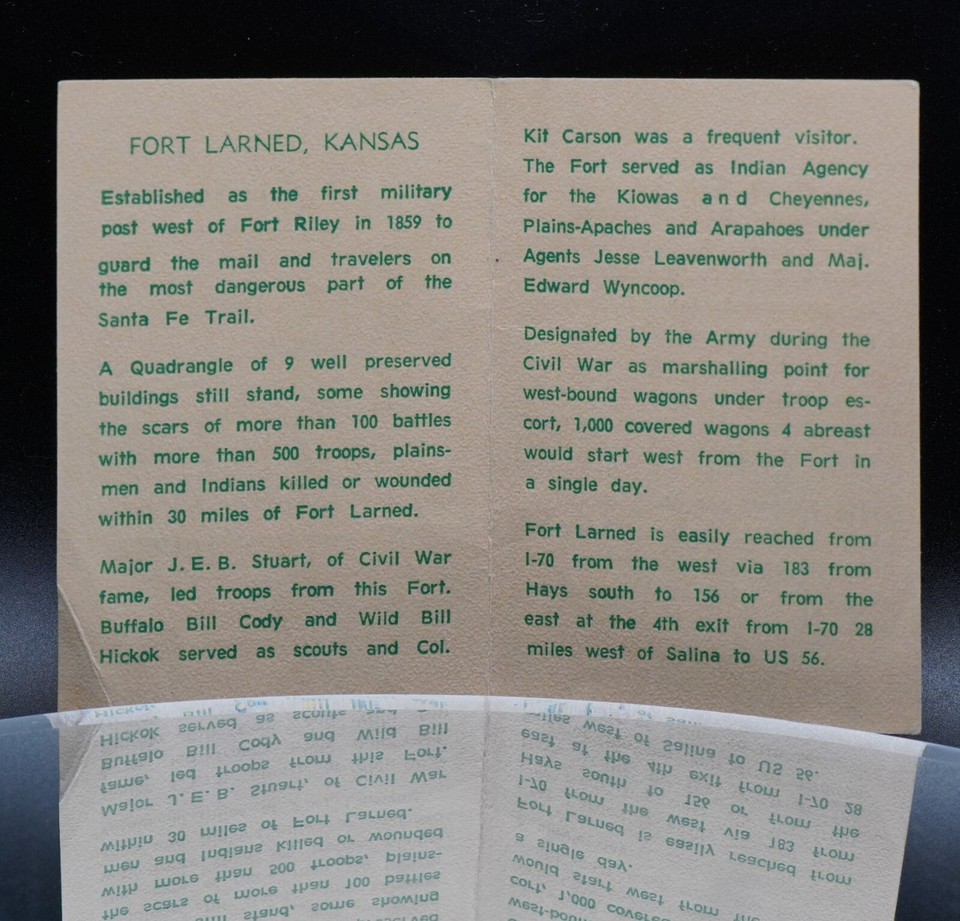 FORT LARNED, KANSAS
Established as the first military
post west of Fort Riley in 1859 to
guard the mail and travelers on
the most dangerous part of the
Santa Fe Trail.
A Quadrangle of 9 well preserved
buildings still stand, some showing
the scars of more than 100 battles
with more than 500 troops, plains-
men and Indians killed or wounded
within 30 miles of Fort Larned.
Major J. E. B. Stuart, of Civil War
fame, led troops from this Fort.
Buffalo Bill Cody and Wild Bill
Hickok served as scouts and Col.
Kit Carson was a frequent visitor.
The Fort served as Indian Agency
for the Kiowas and Cheyennes,
Plains-Apaches and Arapahoes under
Agents Jesse Leavenworth and Maj.
Edward Wyncoop.
Designated by the Army during the
Civil War as marshalling point for
west-bound wagons under troop es-
cort, 1,000 covered wagons 4 abreast
would start west from the Fort in
a single day.
Fort Larned is easily reached from
I-70 from the west via 183 from
Hays south to 156 or from the
east at the 4th exit from I-70 28
miles west of Salina to US 56.